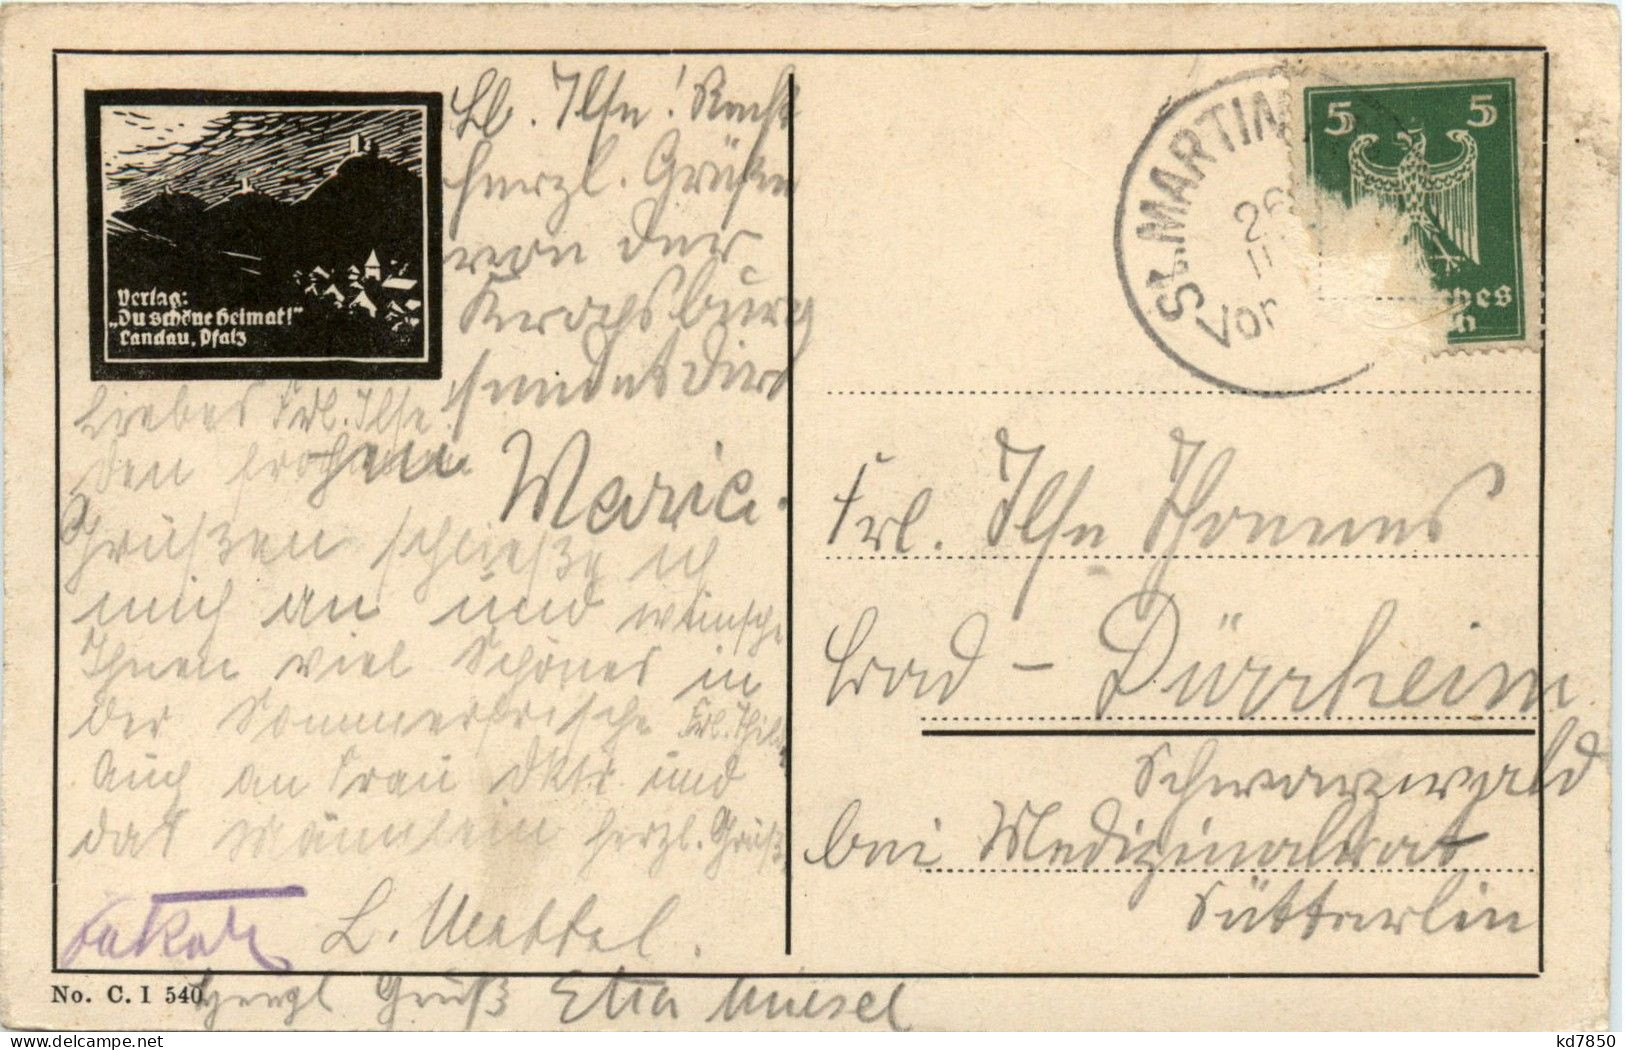 Lb. Ilse! Recht
herzl. Grüße
von der
Kropsburg
sendet Dir
Marie.
Liebes Frl. Ilse!
den frohen
Grüßen schließe ich
mich an und wünsche
Ihnen viel Schönes in
der Sommerfrische
Auch an Frau Dktr. und
das Männlein herzl. Grüße
L.
Herzl Gruß
Verlag:
„Du schöne Heimat!"
Landau, Pfalz
No. C. I 540
ST. MARTIN
26
Vor
5 5
Frl. Ilse Thomas
Bad-Dürrheim
Schwarzwald
bei Medizinalrat
Sütterlin
kd7850